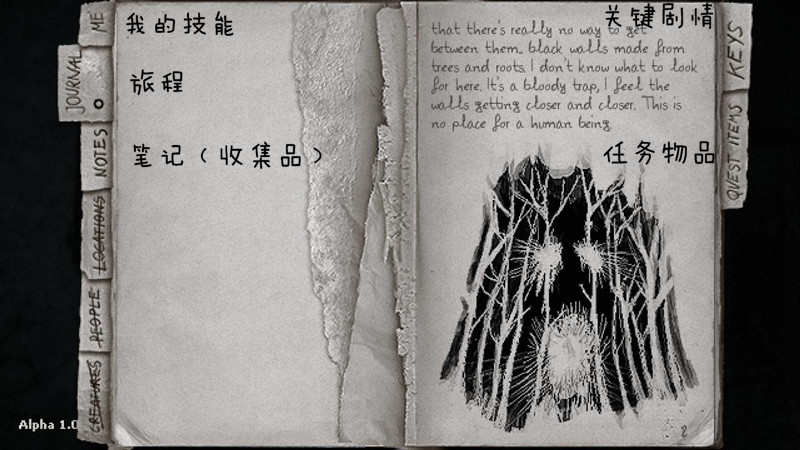 ME
JOURNAL
NOTES
LOCATIONS
PEOPLE
CREATURES
我的技能
旅程
笔记（收集品）
关键剧情
that there's really no way to get
between them.. black walls made from
trees and roots. I don't know what to look
for here. It's a bloody trap, I feel the
walls getting closer and closer. This is
no place for a human being.
任务物品
KEYS
QUEST ITEMS
2
Alpha 1.0